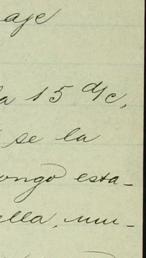 aje
a 15 d/c,
se la
ongo esta-
ella, mu-